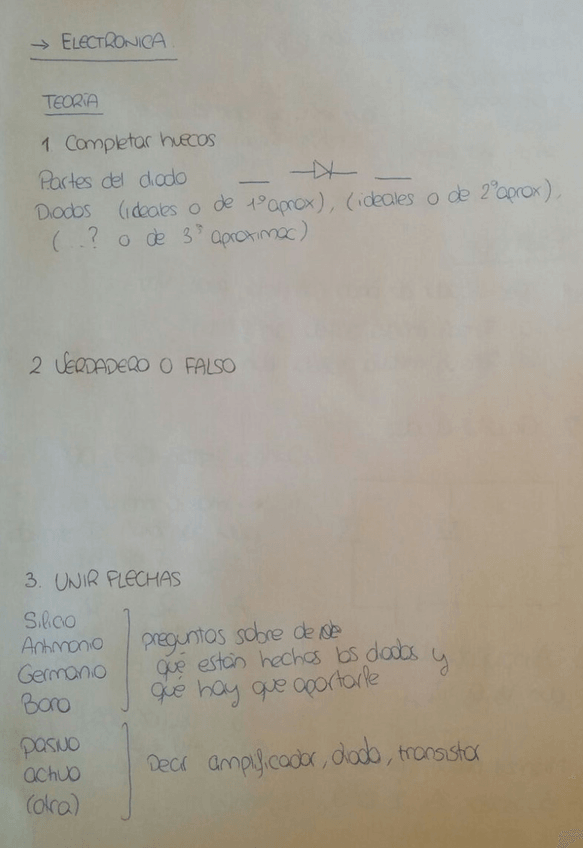 → ELECTRONICA
TEORIA
1 Completar huecos
Partes del diodo __ __
Diodos (ideales o de 1º aprox), (ideales o de 2º aprox),
(...? o de 3ª aproximac)
2 VERDADERO O FALSO
3. UNIR FLECHAS
Silicio
Antimonio
Germanio
Boro
preguntas sobre de
qué están hechos los diodos y
qué hay que aportarle
pasivo
activo
(otra)
Decir amplificador, diodo, transistor